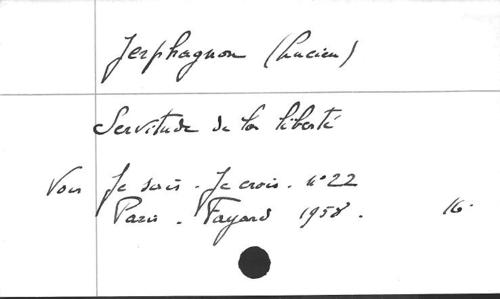 Jerphagnon (Lucien)
Servitude de la liberté
Voir Je sais. Je crois. n°22
Paris. Fayard 1958. 16.